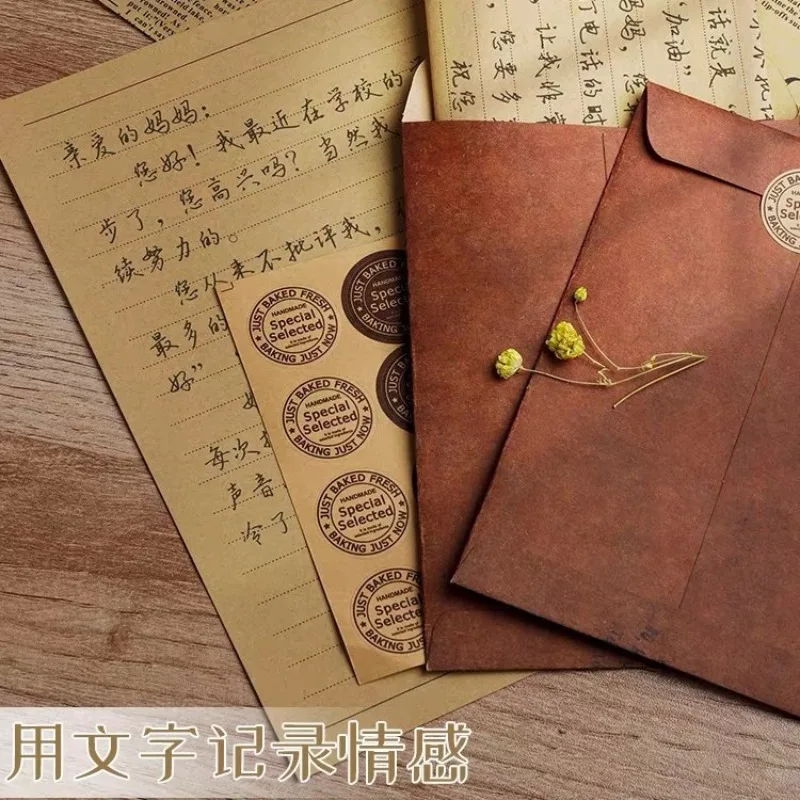 亲爱的妈妈：
您好！我最近在学校的
步了，您高兴吗？当然我
续努力的。
您从来不批评我，
最多的
好”
每次
声音
冷了
话就是“
“加油”
妈妈，您
打电话的时
让我非常
您要多
祝您
JUST BAKED FRESH
HANDMADE
Special
Selected
BAKING JUST NOW
JUST BAKED
HANDMADE
Special
Selected
BAKING
JUST BAKED FRESH
HANDMADE
Special
Selected
BAKING JUST NOW
JUST BAKED FRESH
HANDMADE
Special
Selected
BAKING JUST NOW
JUST BAKED
HANDMADE
Special
Selected
BAKING JUST
JUST BAKED
Special
Selected
BAKING
用文字记录情感